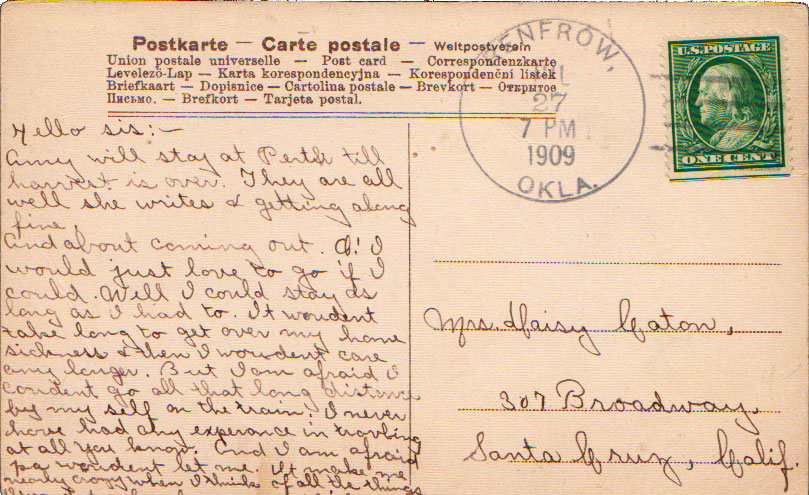 Postkarte — Carte postale — Weltpostverein
Union postale universelle — Post card — Correspondenzkarte
Levelező-Lap — Karta korespondencyjna — Korespondenční lístek
Briefkaart — Dopisnice — Cartolina postale — Brevkort — Открытое
Письмо. — Brefkort — Tarjeta postal.
RENFROW,
27
7 PM
1909
OKLA.
U.S. POSTAGE
ONE CENT
Hello sis:—
Amy will stay at Perth till
harvest is over. They are all
well she writes & getting along
fine.
And about coming out. O! I
would just love to go if I
could. Well I could stay as
long as I had to. It woudent
take long to get over my home
sickness & then I woudent care
any longer. But I am afraid I
coudent go all that long distance
by my self on the train. I never
have had any experance in travling
at all you know. And I am afraid
pa woudent let me. It make me
nearly crazy when I think of all the things
Mrs. Daisy Caton,
307 Broadway,
Santa Cruz, Calif.